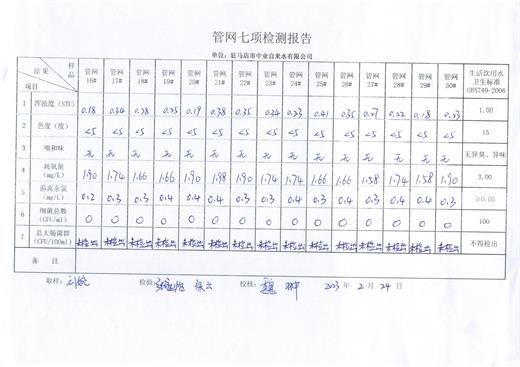 管网七项检测报告
单位：驻马店市中业自来水有限公司
结果 样品 项目 管网16# 管网17# 管网18# 管网19# 管网20# 管网21# 管网22# 管网23# 管网24# 管网25# 管网26# 管网27# 管网28# 管网29# 管网30# 生活饮用水卫生标准GB5749-2006
1 浑浊度（NTU） 0.18 0.34 0.28 0.25 0.19 0.38 0.35 0.24 0.23 0.41 0.35 0.27 0.22 0.18 0.23 1.00
2 色度（度） <5 <5 <5 <5 <5 <5 <5 <5 <5 <5 <5 <5 <5 <5 <5 15
3 嗅和味 无 无 无 无 无 无 无 无 无 无 无 无 无 无 无 无异臭、异味
4 耗氧量（mg/L） 1.90 1.74 1.66 1.66 1.90 1.98 1.90 1.74 1.74 1.66 1.66 1.58 1.74 1.58 1.90 3.00
5 游离余氯（mg/L） 0.2 0.3 0.3 0.4 0.4 0.3 0.4 0.3 0.4 0.4 0.3 0.3 0.4 0.4 0.3 ≥0.05
6 细菌总数（CFU/ml） 0 0 0 0 0 0 0 0 0 0 0 0 0 0 0 100
7 总大肠菌群（CFU/100ml） 未检出 未检出 未检出 未检出 未检出 未检出 未检出 未检出 未检出 未检出 未检出 未检出 未检出 未检出 未检出 不得检出
备 注
取样： 检验： 校核： 2023 年 2 月 24 日